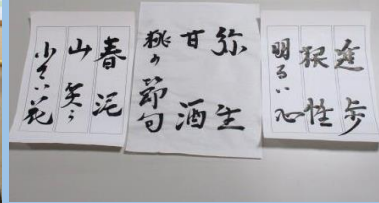 進歩
根性
明るい心
弥生
甘酒
桃の節句
春泥
山笑う
小さい花